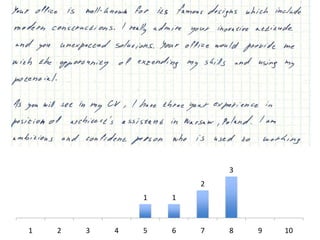 Your office is well-known for its famous designs which include
modern constructions. I really admire your inventive attitude
and you unexpected solusions. Your office would provide me
with the opportunity of extending my skills and using my
potencial.
As you will see in my CV, I have three year experience in
posicion of architect's assistend in Warsaw, Poland. I am
ambisious and confident person who is used to working
3
2
1 1
1 2 3 4 5 6 7 8 9 10